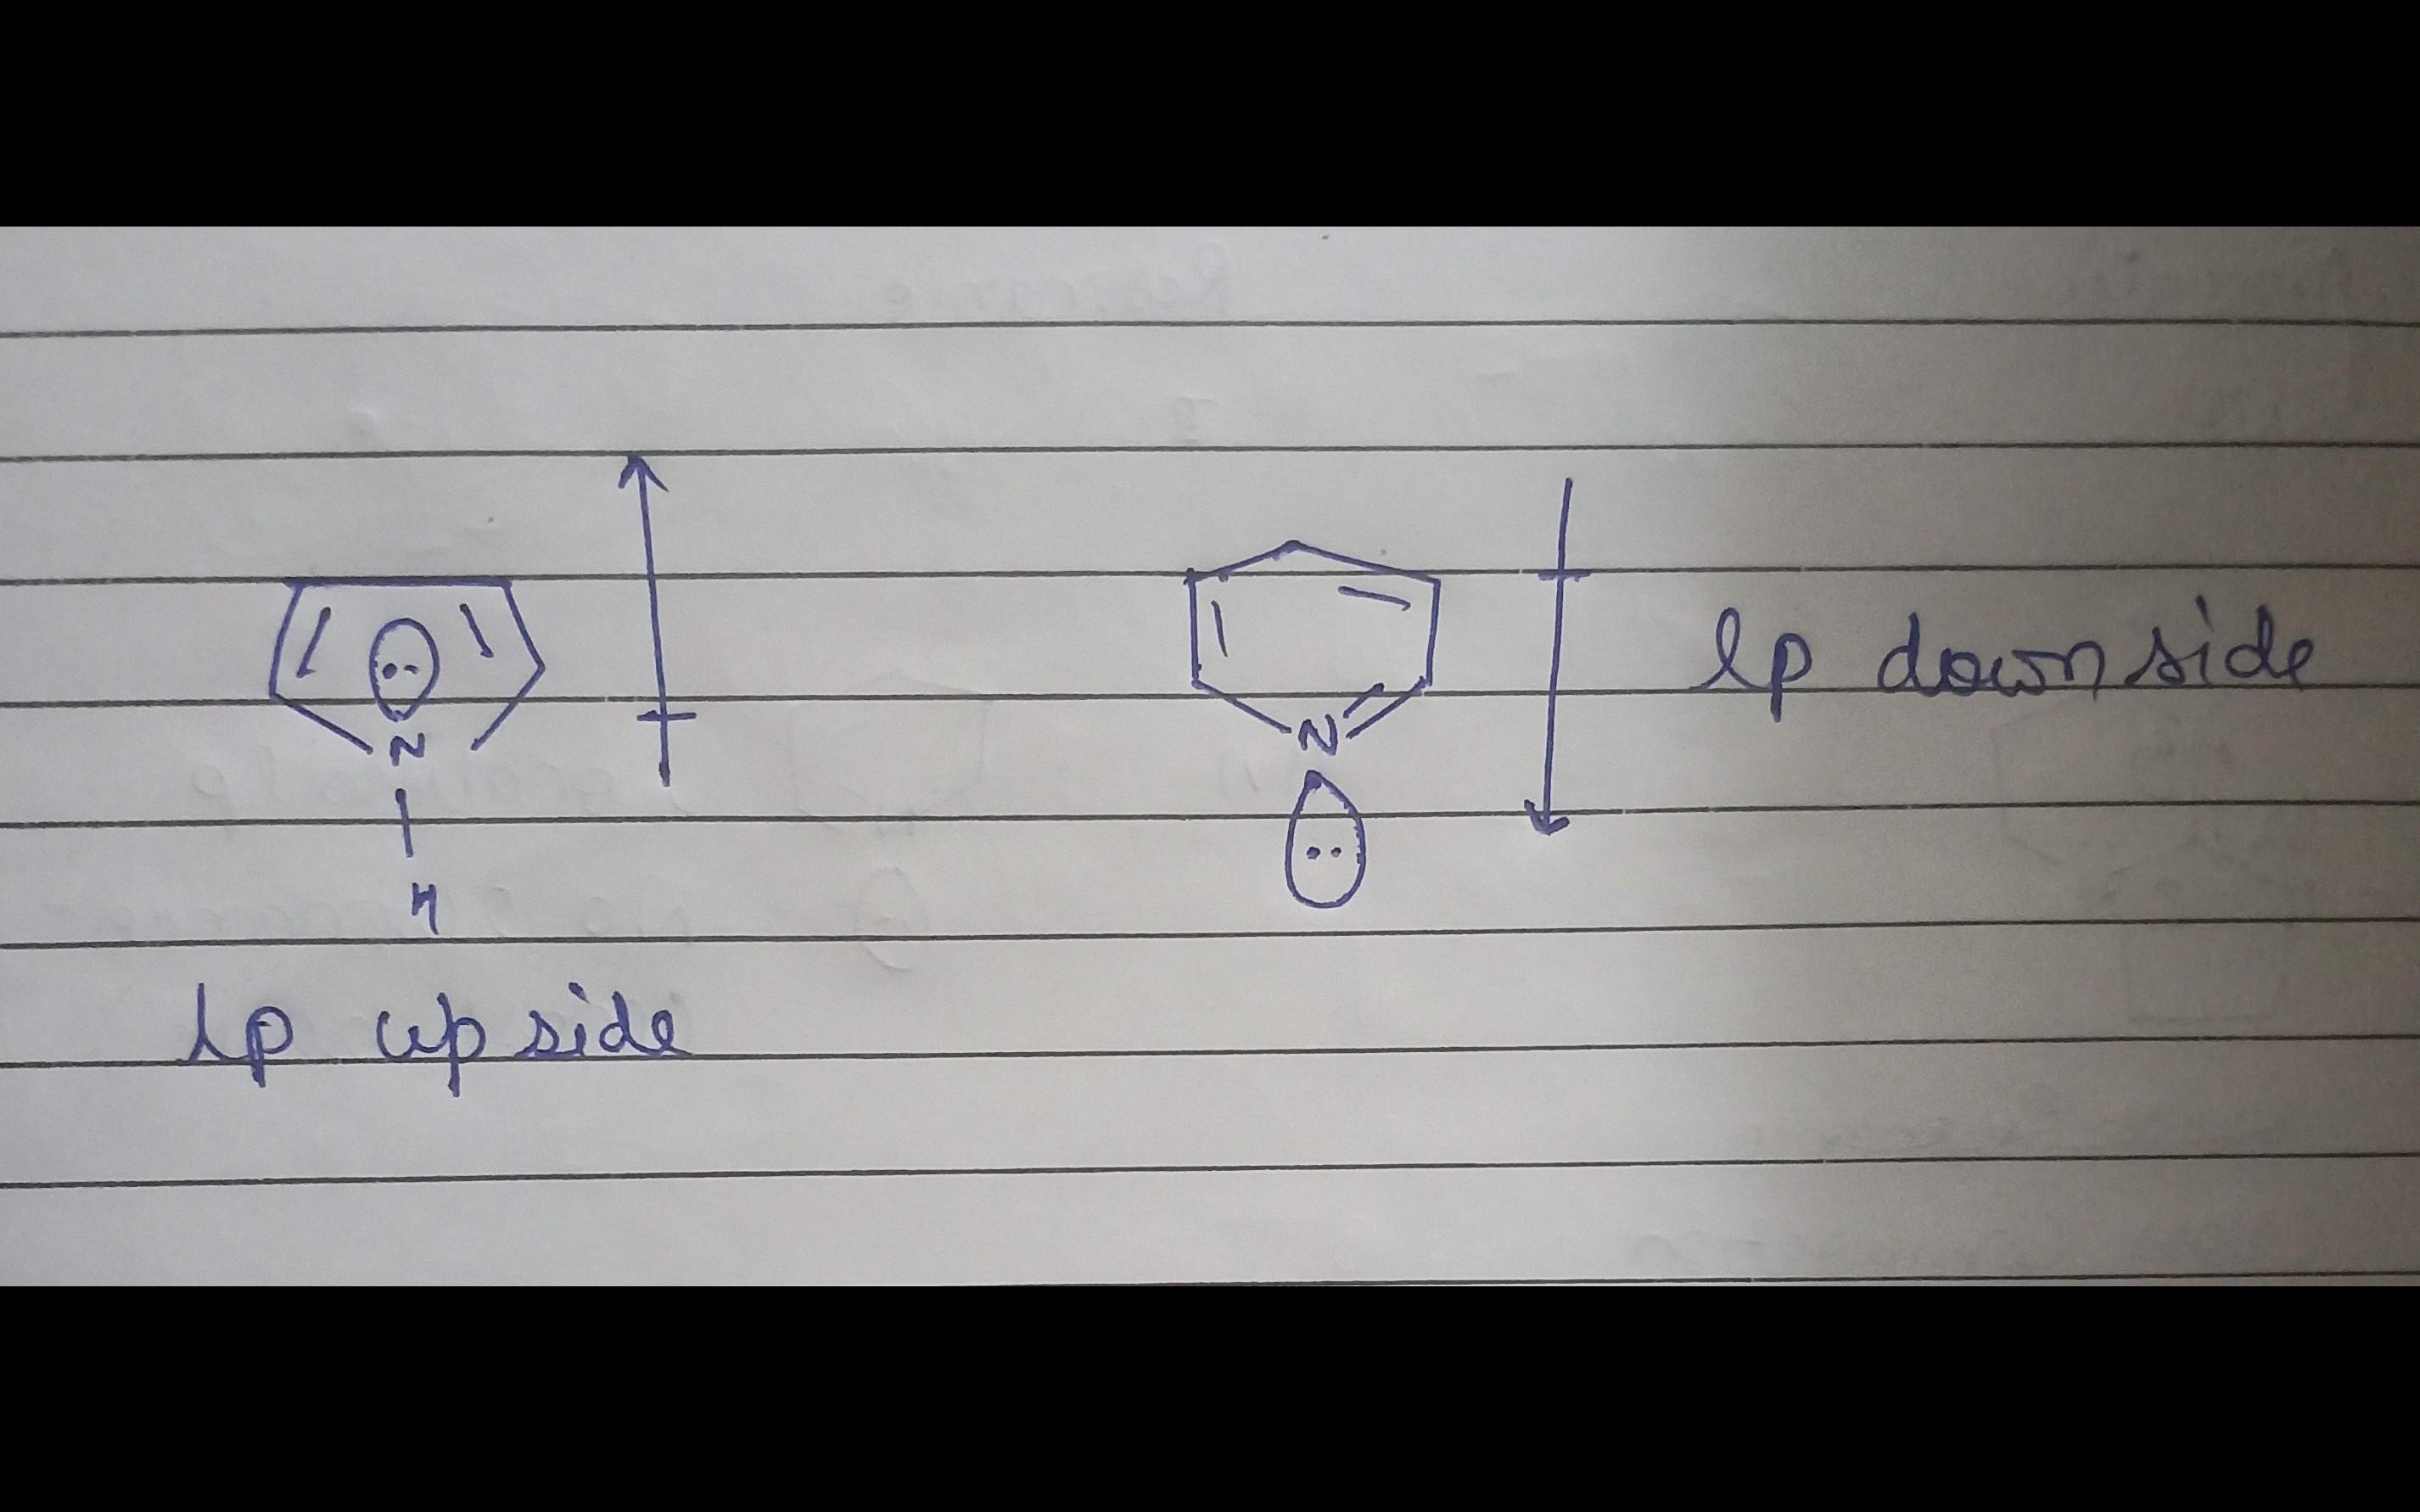 N
H
lp up side
N
lp down side